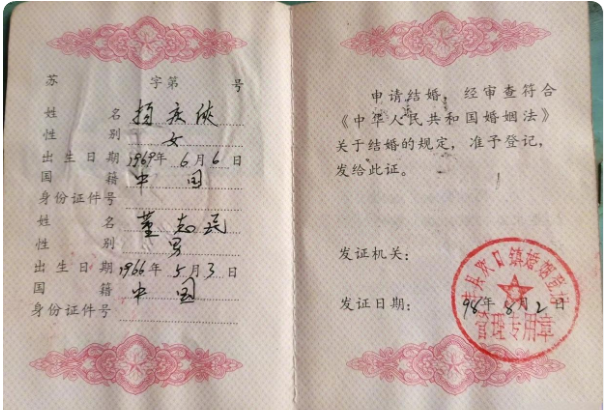 苏 字第 号
姓 名 杨庆侠
性 别 女
出生日期 1969年6月6日
国 籍 中国
身份证件号
姓 名 董志民
性 别 男
出生日期 1966年5月3日
国 籍 中国
身份证件号
申请结婚，经审查符合
《中华人民共和国婚姻法》
关于结婚的规定，准予登记，
发给此证。
发证机关：
发证日期：98年8月2日
县欢口镇婚姻登记
管理专用章